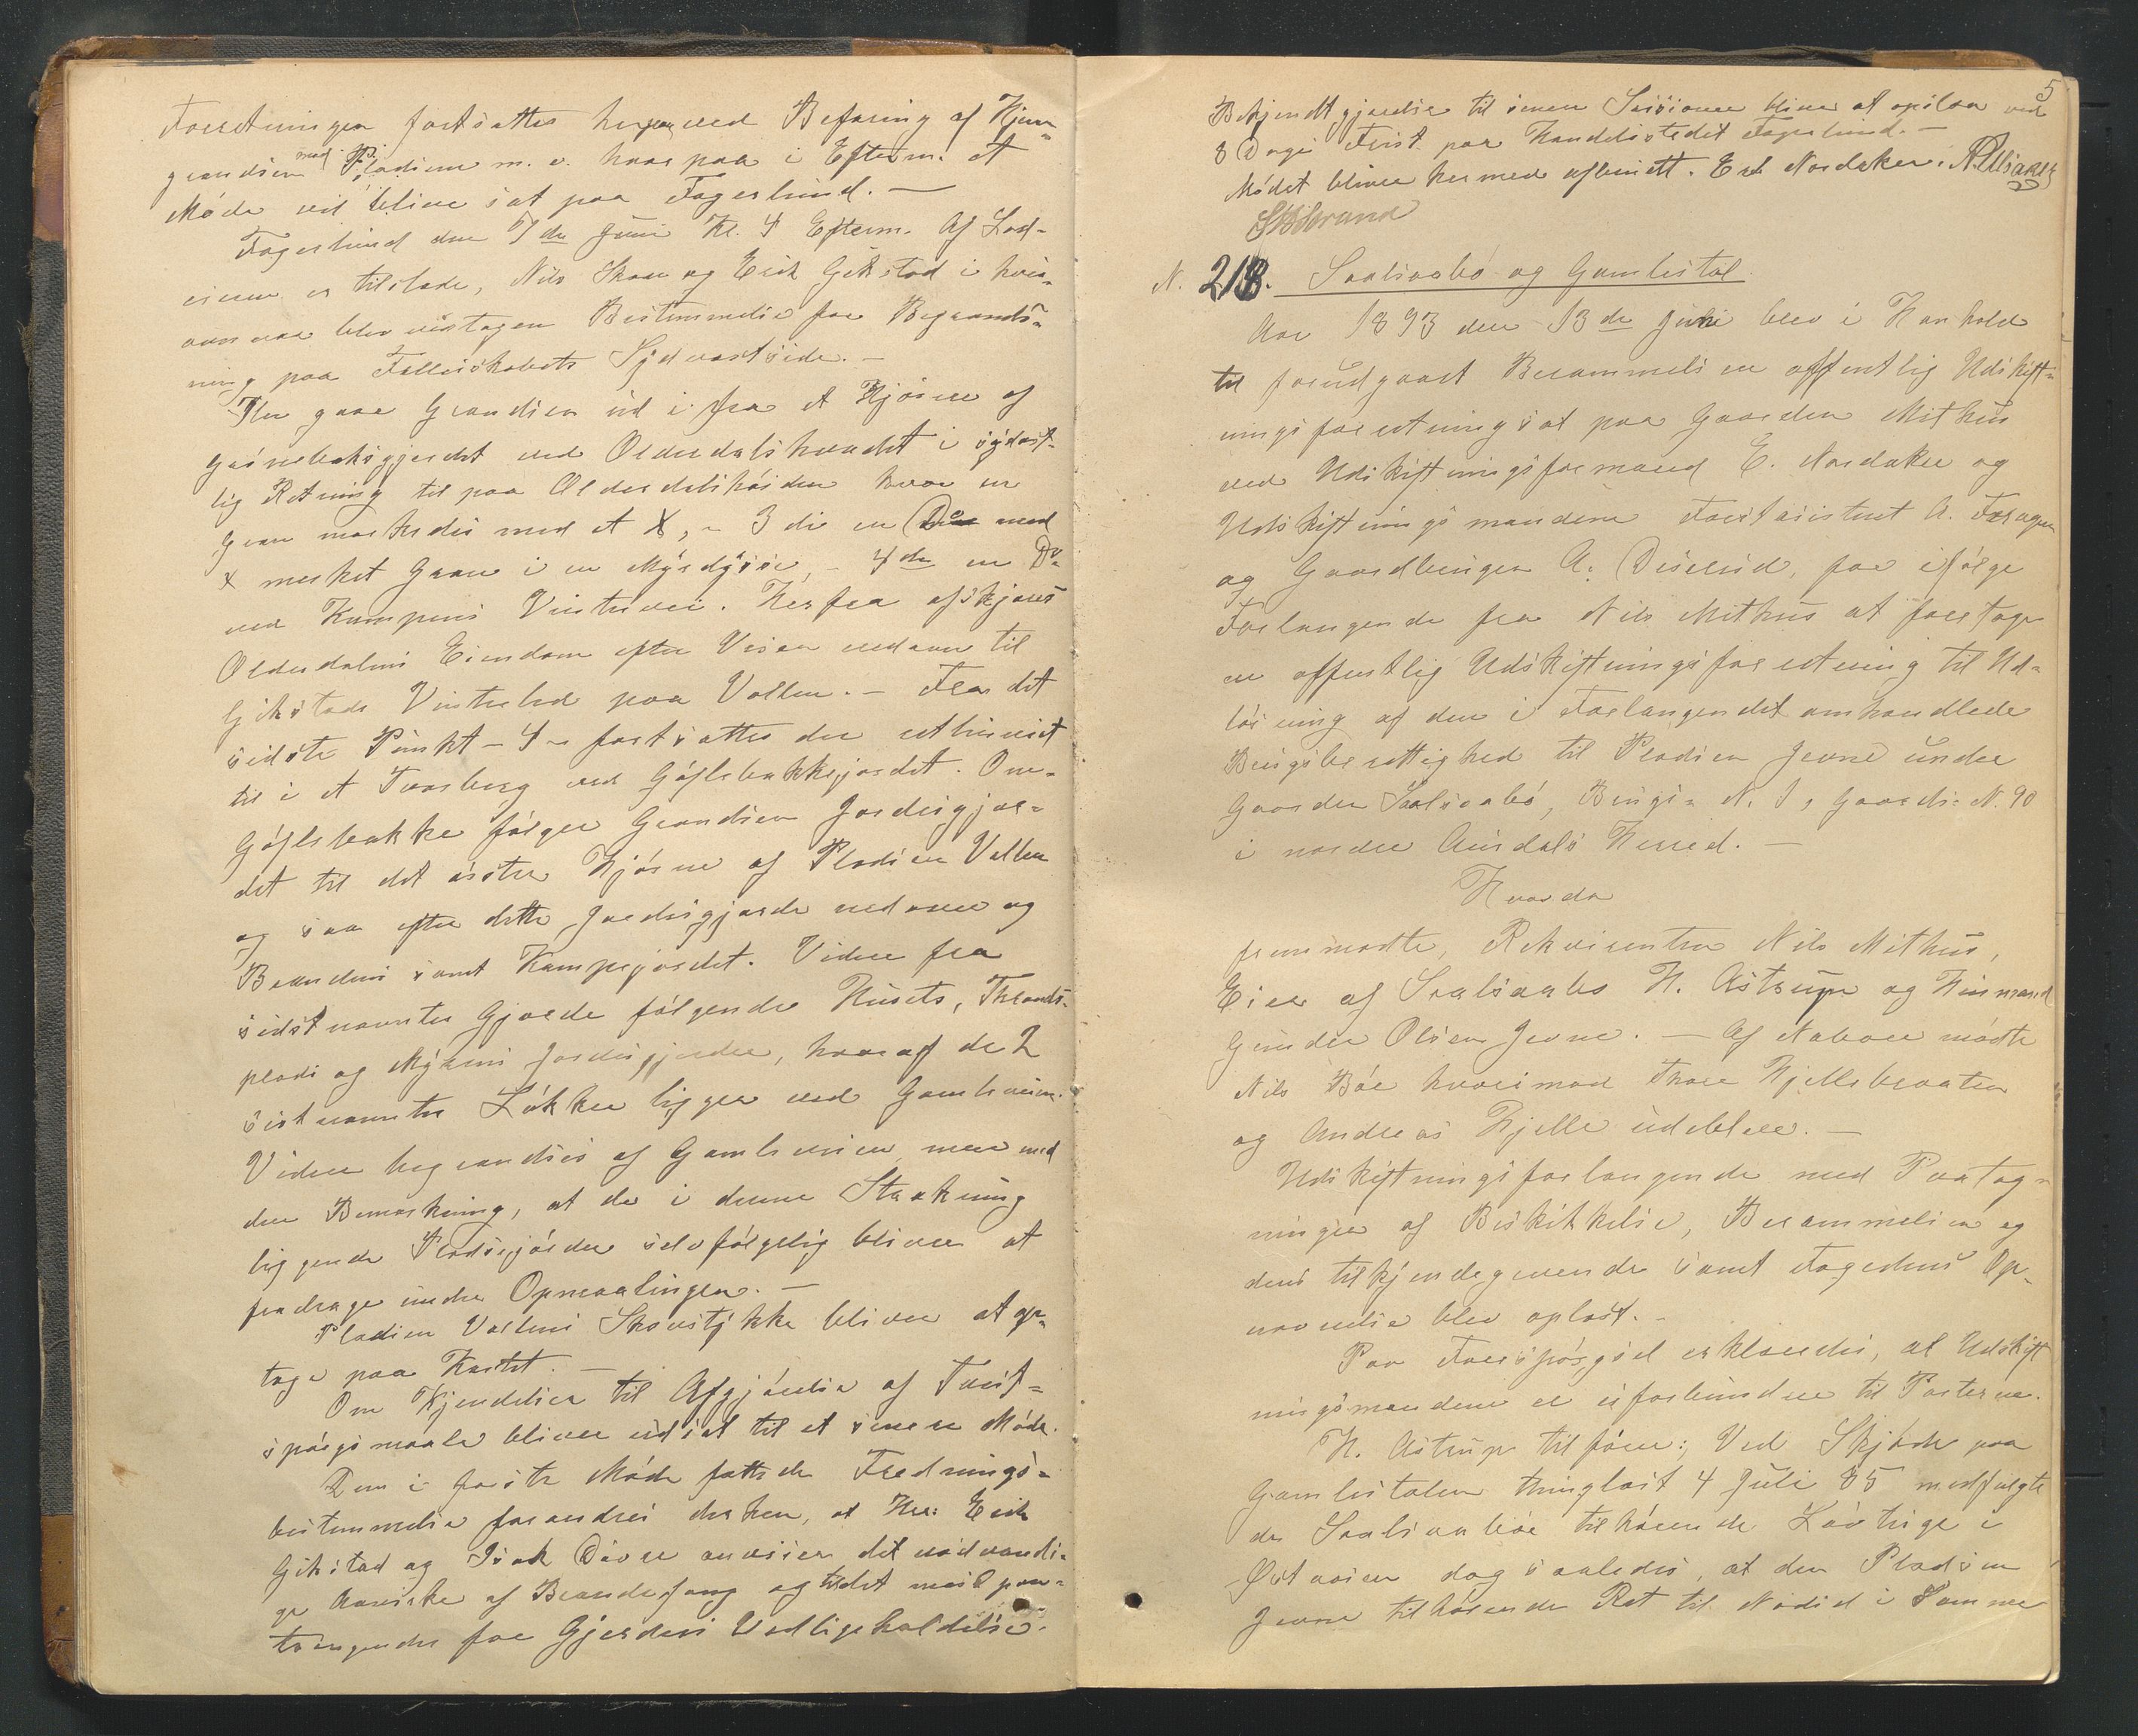 Forretningen fortsattes herpaa ved Befaring af Hjem-
grændsen mod Pladsene m. v. hvorpaa i Efterm. et
Møde vil blive sat paa Fagerlund. —
Fagerlund den 7de Juni Kl. 4 Efterm. Af Lod-
eierne er tilstede, Nils Skau og Erik Gikstad i hvis
nærvær blev vedtagen Bestemmelse for Begrænds-
ning paa Fællesskabets Sydvestside. —
Her gaar Grændsen ud i fra et Hjørne af
gjerdet ved Olderdalshændet i sydøst-
lig Retning til paa Olderdalshøiden hvor en
Gran merkedes med et X, - 3die en Do med
X merket Gran i en Myrdysse, - 4de en Do
ved Kampens Vintervei. Herfra afskjæres
Olderdalens Eiendom efter Veien nedover til
Gikstads Vinterled paa Vollen. - Fra det
sidste Punkt - 4 - fortsættes der retlinient
til i et Tverberg ved Gøflebakkejordet. Om-
Gøflebakke følger Grændsen Jordesgjær-
det til det østre Hjørne af Pladsen Vollen
og saa efter dette Jordesgjærde nedover og
Brændens samt Kampejordet. Videre fra
sidstnævnte Gjærde følgende Husets, Thrønds-
plads og Myrens Jordesgjerder, hvoraf de 2
sistnævnte Løkker ligger ved Gamleveien.
Videre begrændses af Gamleveien, men med
den Bemærkning, at de i denne Strækning
liggende Pladsejorder selvfølgelig bliver at
fradrage under Opmaalingen. —
Pladsen Vollens Skovstykke bliver at op-
tage paa Kartet. —
Om Kjendelser til Afgjørelse af Tvist-
spørgsmaale bliver udsat til et senere Møde.
Den i første Møde fattede Frednings-
bestemmelse forandres derhen, at Hrr: Erik
Gikstad og Isak Døvre anviser det nødvendi-
ge Aarvirke af Brændefang og til det mest paa-
trængende for Gjerders Vedligeholdelse.
5
Bekjendtgjørelse til senere Sessioner bliver at opslaa med
8 Dages Frist paa Handelsstedet Fagerlund. —
Mødet bliver hermed afsluttet. E Nordaker.
N. 218. Saalsaabø og Gamlestøl.
Aar 1893 den 13de Juni blev i Henhold
til forudgaaet Berammelse en offentlig Udskift-
ningsforretning sat paa Gaarden Mithus
ved Udskiftningsformand E. Nordaker og
Udskiftningsmændene Forstassistent A. Foragen
og Gaardbruger A. Diserud, for ifølge
Forlangende fra Nils Mithus at foretage
en offentlig Udskiftningsforretning til Ud-
løsning af den i Forlangendet omhandlede
Brugsberettighed til Pladsen Jevne under
Gaarden Saalsaabø, Brugs- N. 1, Gaards- N. 90
i nordre Aurdals Herred. —
Hvorda
fremmødte, Rekvirenten Nils Mithus,
Eier af Saalsaabø H. Astrup og Husmand
Gunder Olsen Jevne. — Af Naboer mødte
Nils Bøe hvorimod Thore Kjellebraaten
og Andreas Hjelle udeblev. —
Udskiftningsforlangende med Paateg-
ninger af Beskikkelse, Berammelsen og
dens tilkjendegivende samt Fogedens Op-
nævnelse blev oplæst. -
Paa Forespørgsel erklærdes, at Udskift
ningsmændene er uforbundne til Parterne.
H. Astrup tilføier: Ved Skjøde paa
Gamlestølen thinglæst 4 Juli 85 medfulgte
de Saalsaabøe tilhørende Løvteige i
Østaasen dog saaledes, at den Pladsen
Jevne tilhørende Ret til Nødsd i Samme